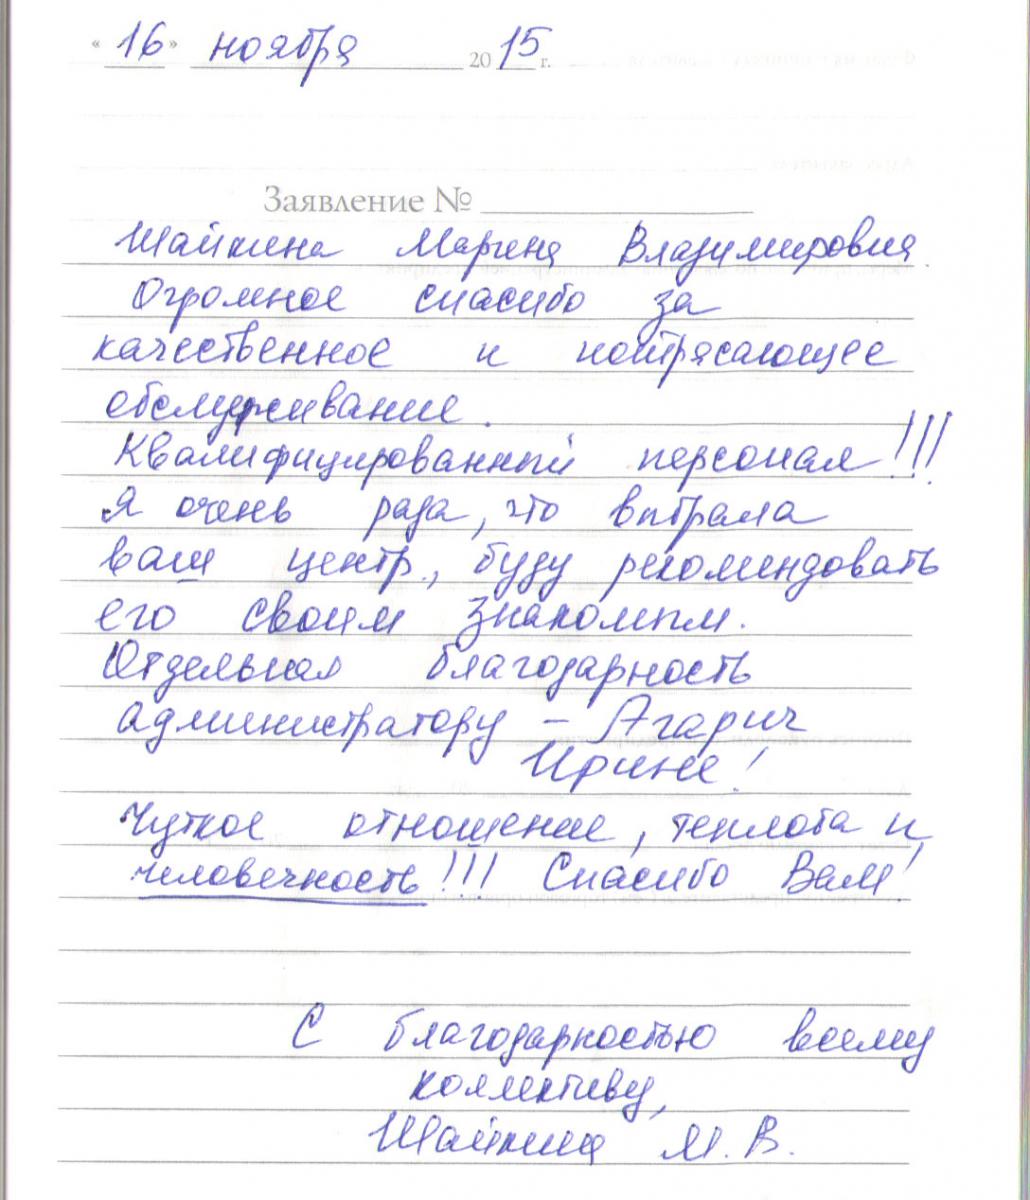 « 16 » ноября 2015 г.
Заявление № ___
Шайкина Марина Владимировна
Огромное спасибо за
качественное и потрясающее
обслуживание.
Квалифицированный персонал!!!
Я очень рада, что выбрала
ваш центр, буду рекомендовать
его своим знакомым.
Отдельная благодарность
администратору – Агарич
Ирине!
Чуткое отношение, теплота и
человечность!!! Спасибо Вам!
С благодарностью всему
коллективу,
Шайкина М.В.